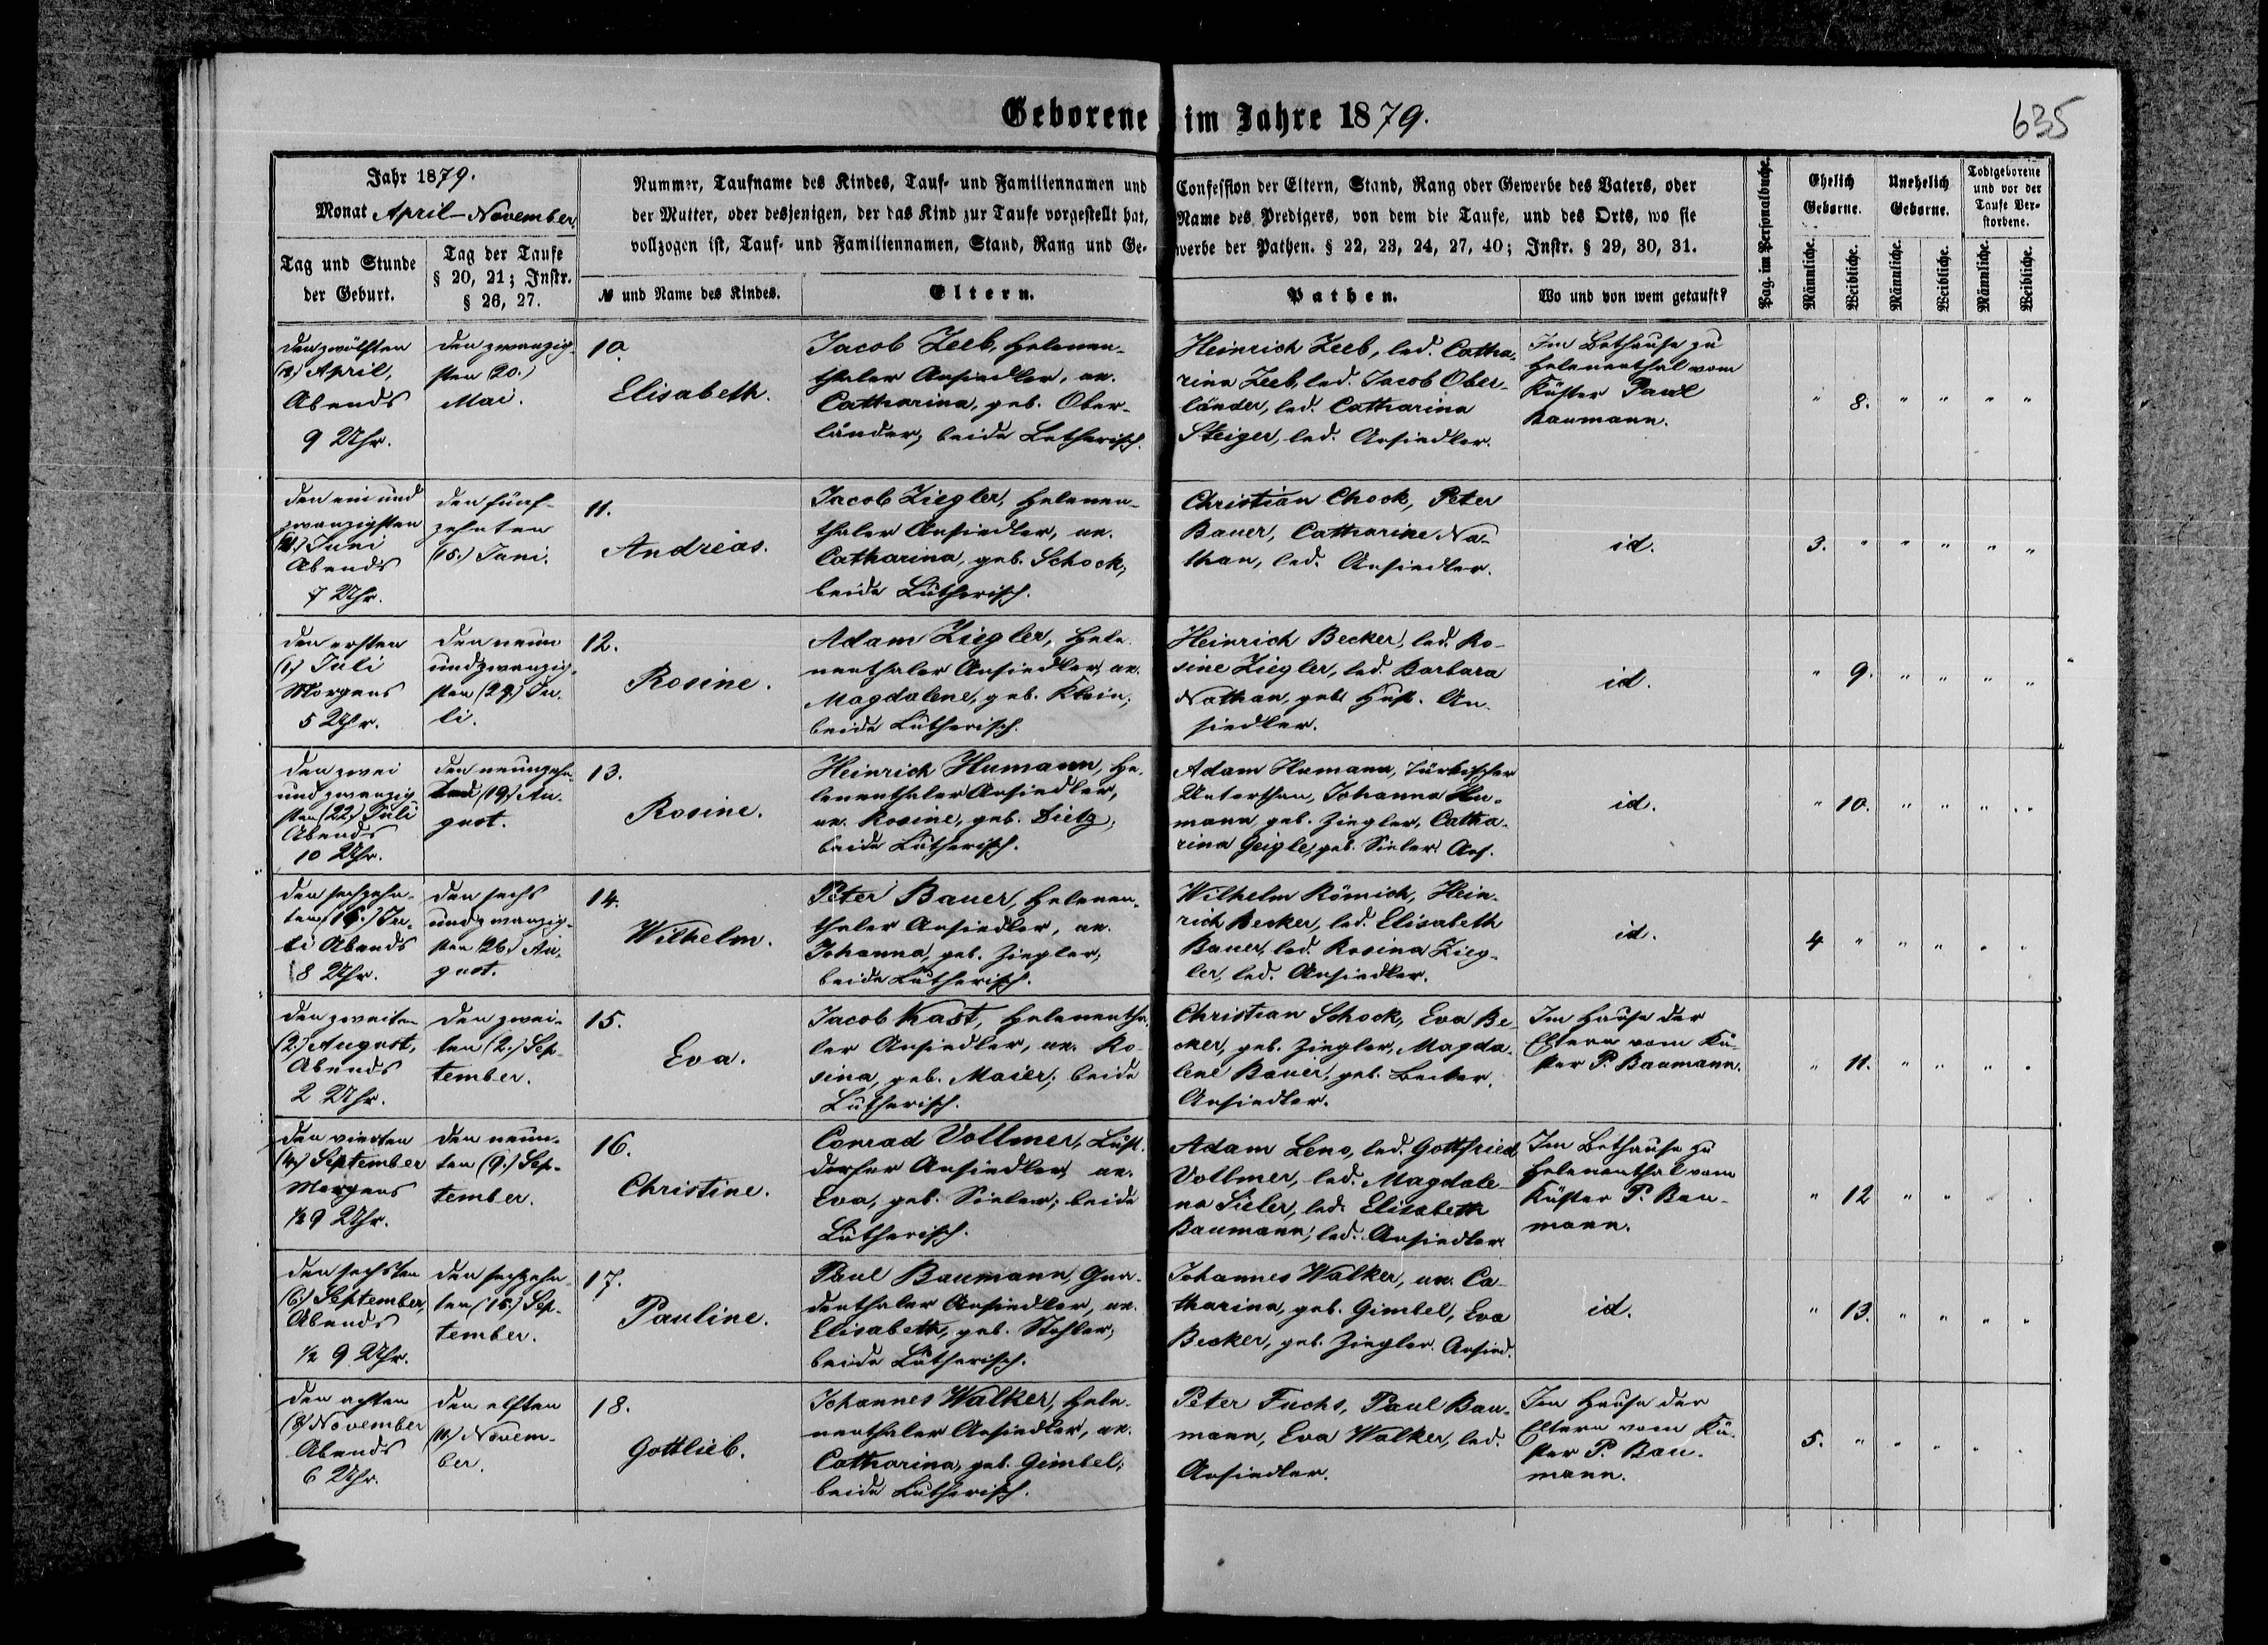 Geborene im Jahre 1879.
635
Jahr 1879.
Monat April-November.
Tag und Stunde
der Geburt.
Tag der Taufe
§ 20, 21; Instr.
§ 26, 27.
Nummer, Taufname des Kindes, Tauf- und Familiennamen und
der Mutter, oder desjenigen, der das Kind zur Taufe vorgestellt hat,
vollzogen ist, Tauf- und Familiennamen, Stand, Rang und Ge-
№ und Name des Kindes.
Eltern.
Confession der Eltern, Stand, Rang oder Gewerbe des Vaters, oder
Name des Predigers, von dem die Taufe, und des Orts, wo sie
werbe der Pathen. § 22, 23, 24, 27, 40; Instr. § 29, 30, 31.
Pathen.
Wo und von wem getauft?
Pag. im Personalbuche.
Ehelich
Geborne.
Unehelich
Geborne.
Todtgeborene
und vor der
Taufe Ver-
storbene.
Männliche.
Weibliche.
Männliche.
Weibliche.
Männliche.
Weibliche.
den zwölften
April,
Abends
9 Uhr.
den zwanzig-
sten (20.)
Mai.
10.
Elisabeth.
Jacob Zeeb, Helenen-
thaler Ansiedler, ux.
Catharina, geb. Ober-
länder, beide Lutherisch.
Heinrich Zeeb, led. Catha-
rina Zeeb, led. Jacob Ober-
länder, led. Catharina
Steiger, led. Ansiedler.
Im Bethause zu
Helenenthal vom
Küster Paul
Baumann.
" 8. " " " "
den ein und
zwanzigsten
(21.) Juni
Abends
7 Uhr.
den fünf-
zehnten
(15.) Juni.
11.
Andreas.
Jacob Ziegler, Helenen-
thaler Ansiedler, ux.
Catharina, geb. Schock,
beide Lutherisch.
Christian Chock, Peter
Bauer, Catharine Na-
than, led. Ansiedler.
id.
3. " " " " "
den ersten
(1.) Juli
Morgens
5 Uhr.
den neun
undzwanzig-
sten (29.) Ju-
li.
12.
Rosine.
Adam Ziegler, Hele-
nenthaler Ansiedler, ux.
Magdalene, geb. Klein,
beide Lutherisch.
Heinrich Becker, led. Ro-
sine Ziegler, led. Barbara
Nathan, geb. Huft. An-
siedler.
id.
" 9. " " " "
den zwei
und zwanzig
sten (22.) Juli
Abends
10 Uhr.
den neunzehn
(19.) Au-
gust.
13.
Rosine.
Heinrich Humann, He-
lenenthaler Ansiedler,
ux. Rosine, geb. Dietz,
beide Lutherisch.
Adam Humann, türkischer
Unterthan, Johanna Hu-
mann, geb. Ziegler, Catha-
rina Geigle, geb. Sieler. Ans.
id.
" 10. " " " "
den sechzehn-
ten (16.) Ju-
li Abends
8 Uhr.
den sechs
undzwanzig-
sten (26.) Au-
gust.
14.
Wilhelm.
Peter Bauer, Helenen-
thaler Ansiedler, ux.
Johanna, geb. Ziegler,
beide Lutherisch.
Wilhelm Römich, Hein-
rich Becker, led. Elisabeth
Bauer, led. Rosina Zieg-
ler, led. Ansiedler.
id.
4 " " " " "
den zweiten
(2.) August,
Abends
2 Uhr.
den zwei-
ten (2.) Sep-
tember.
15.
Eva.
Jacob Kast, Helenentha-
ler Ansiedler, ux. Ro-
sina, geb. Maier, beide
Lutherisch.
Christian Schock, Eva Be-
cker, geb. Ziegler, Magda-
lene Bauer, geb. Becker.
Ansiedler.
Im Hause der
Eltern vom Kü-
ster P. Baumann.
" 11. " " " "
den vierten
(4.) September
Morgens
½ 9 Uhr.
den neun-
ten (9.) Sep-
tember.
16.
Christine.
Conrad Vollmer, Lust-
dorfer Ansiedler, ux.
Eva, geb. Sieler; beide
Lutherisch.
Adam Lens, led. Gottfried
Vollmer, led. Magdale-
na Sieler, led. Elisabeth
Baumann, led. Ansiedler
Im Bethause zu
Helenenthal vom
Küster P. Bau-
mann.
" 12 " " " "
den sechsten
(6.) September,
Abends
½ 9 Uhr.
den sechzehn-
ten Sep-
tember.
17.
Pauline.
Paul Baumann, Gna-
denthaler Ansiedler, ux.
Elisabeth, geb. Stohler,
beide Lutherisch.
Johannes Walker, ux. Ca-
tharina, geb. Gimbel, Eva
Becker, geb. Ziegler. Ansied.
id.
" 13. " " " "
den achten
(8.) November
Abends
6 Uhr.
den elften
(11.) Novem-
ber.
18.
Gottlieb.
Johannes Walker, Hele-
nenthaler Ansiedler, ux.
Catharina, geb. Gimbel;
beide Lutherisch.
Peter Fuchs, Paul Bau-
mann, Eva Walker, led.
Ansiedler.
Im Hause der
Eltern vom Kü-
ster P. Bau-
mann.
5. " " " " "